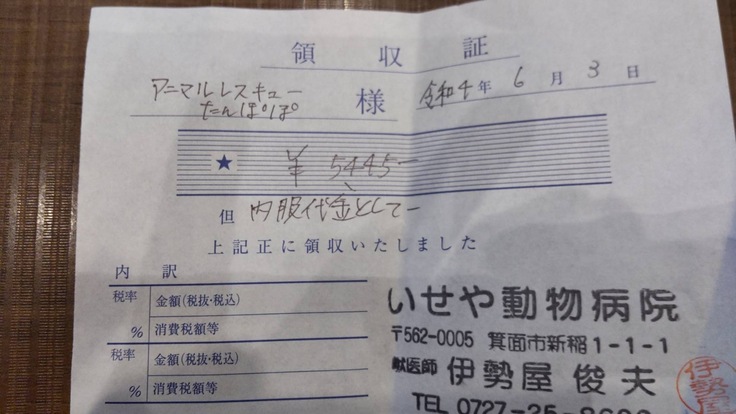 領収証
アニマルレスキュー
たんぽぽ 様
令和4年6月3日
★ ¥5445-
但 内服代金として-
上記正に領収いたしました
内訳
税率 金額(税抜・税込)
% 消費税額等
税率 金額(税抜・税込)
% 消費税額等
いせや動物病院
〒562-0005 箕面市新稲1-1-1
獣医師 伊勢屋 俊夫
TEL 0727-25-
伊勢屋